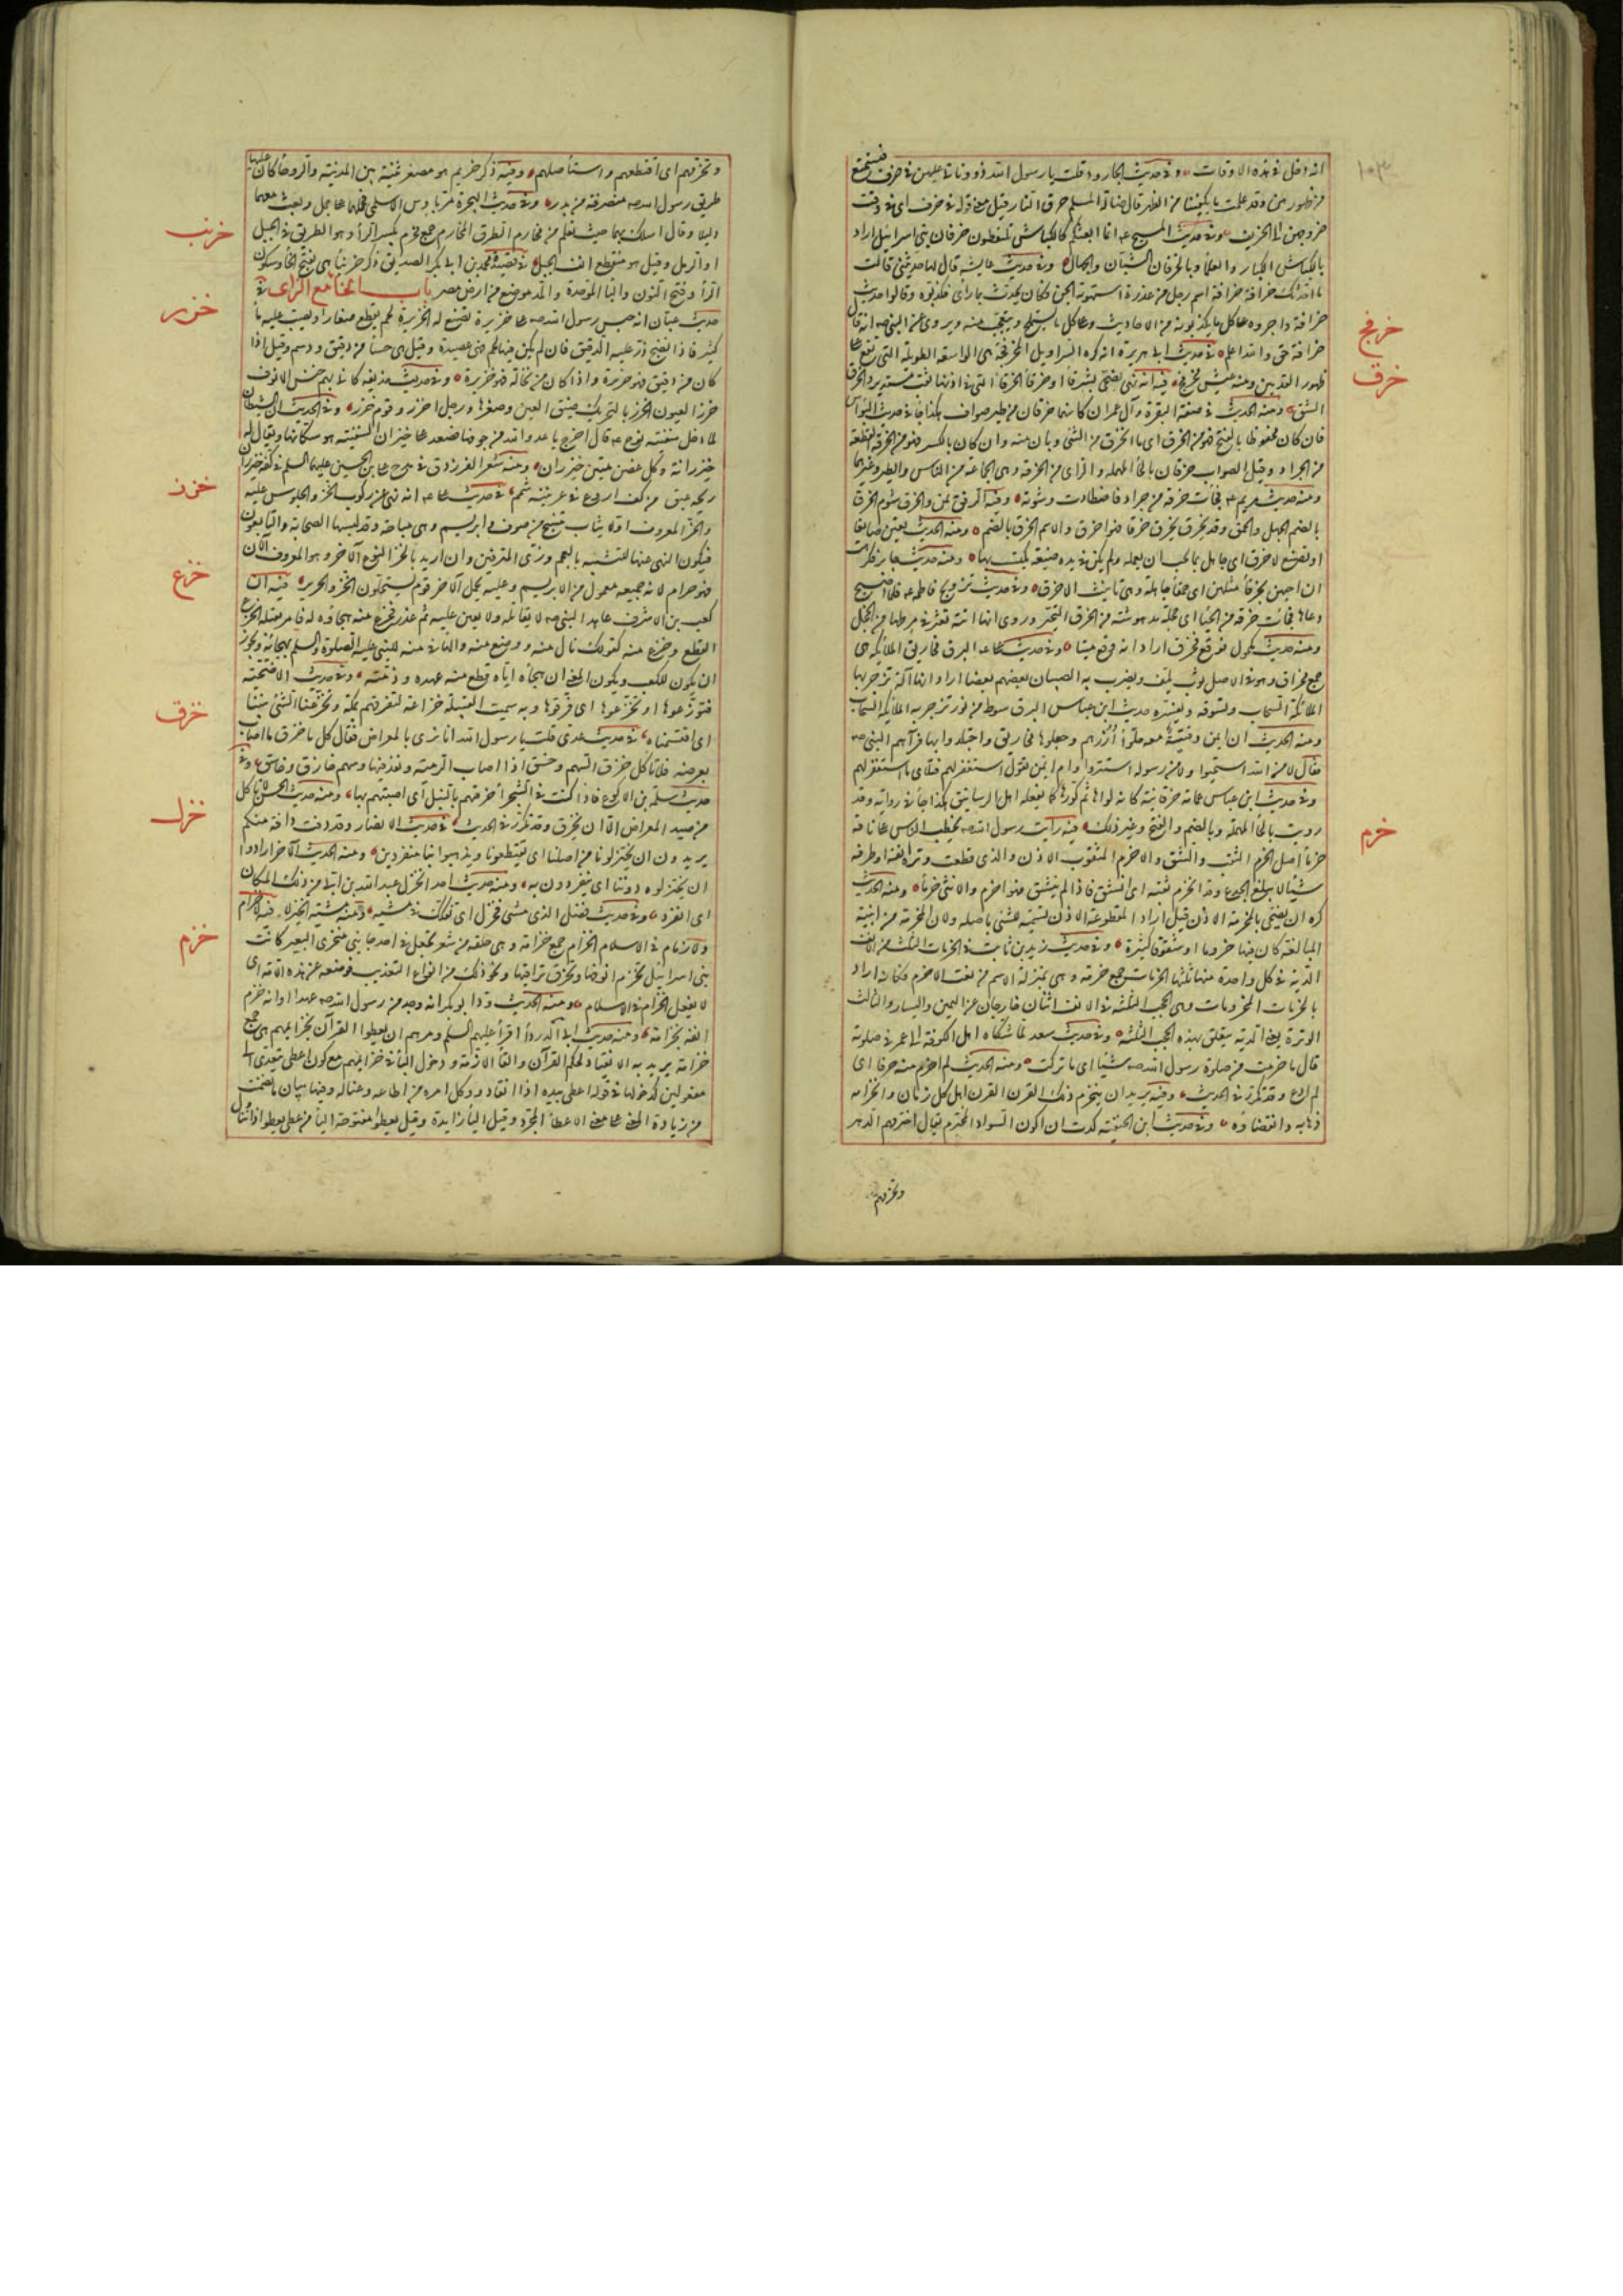 ١٠٣
انه دخل في هذه الاوقات وفي حديث الجارود قلت يا رسول الله ذود ناتي عليهن في خرف فنستمتع
من ظهورهن وقد علمت ما يكفينا من الظهر قال ضالة المسلم حرق النار قيل معنى قوله في خرف اى في وقت
خروجهن الى الخريف وفي حديث المسيح عه انما ابعثكم كالكباش تلتقطون خرفان بني اسرائيل اراد
بالكباش الكبار والعلماء وبالخرفان الشبان والجهال وفي حديث عايشه قال لها حدثيني قالت
ما احدثك حديث خرافة خرافة اسم رجل من عذرة استهوته الجن فكان يحدث بما راى فكذبوه وقالوا حديث
خرافة واجروه على كل ما يكذبونه من الاحاديث وعلى كل ما يستملح ويتعجب منه ويروى عن النبي صه انه قال
خرافة حق والله اعلم في حديث ابي هريرة انه كره السراويل المخرفجة هي الواسعة الطويلة التي تقع على
ظهور القدمين ومنه عيش مخرفج فيه انه نهى ان يضحى بشرقاء او خرقاء الخرقاء التي في اذنها ثقب مستدير والخرق
الشق ومنه الحديث في صفة البقرة وآل عمران كانهما خرقان من طير صواف هكذا جاء في حديث النواس
فان كان محفوظا بالفتح فهو من الخرق اى ما انخرق من الشئ وبان منه وان كان بالكسر فهو من الخرقة القطعة
من الجراد وقيل الصواب حزقان بالحاء المهملة والزاى من الحزقة وهي الجماعة من الناس والطير وغيرهما
ومنه حديث مريم عه فجاءت خرقة من جراد فاصطادت وشوته وفيه الرفق يمن والخرق شوم الخرق
بالضم الجهل والحمق وقد خرق يخرق خرقا فهو اخرق والاسم الخرق بالضم ومنه الحديث تعين صانعا
او تصنع لاخرق اى جاهل بما يجب ان يعمله ولم يكن في يده صنعة يكتسب بها ومنه حديث جابر فكرهت
ان اجيئهن بخرقاء مثلهن اى حمقاء جاهلة وهي تانيث الاخرق وفي حديث تزويج فاطمه عه فلما اصبح
دعاها فجاءت خرقة من الحياء اى خجلة مدهوشة من الخرق التحير وروى انها اتته تعثر في مرطها من الخجل
ومنه حديث مكحول فوقع فخرق اراد انه وقع ميتا وفي حديث على عه البرق مخاريق الملائكه هي
جمع مخراق وهو في الاصل ثوب يلف ويضرب به الصبيان بعضهم بعضا اراد انها آلة تزجر بها
الملائكة السحاب وتسوقه ويفسره حديث ابن عباس البرق سوط من نور تزجر به الملائكة السحاب
ومنه الحديث ان ايمن وفتية معه حلوا ازرهم وجعلوها مخاريق واجتلدوا بها فرآهم النبي صه
فقال لا من الله استحيوا ولا من رسوله استتروا وام ايمن تقول استغفر لهم فبلاى ما استغفر لهم
وفي حديث ابن عباس عمامة خرقانية كانه لواها ثم كورها كما يفعله اهل الرساتيق هكذا جاء في رواية وقد
رويت بالحاء المهملة وبالضم والفتح وغير ذلك فيه رايت رسول الله صه يخطب الناس على ناقة
خرماء اصل الخرم الثقب والشق والاخرم المثقوب الاذن والذي قطعت وترة انفه او طرفه
شيئا لا يبلغ الجدع وقد انخرم ثقبه اى انشق فاذا لم ينشق فهو اخزم والانثى خزماء ومنه الحديث
كره ان يضحى بالمخرمة الاذن قيل اراد المقطوعة الاذن تسمية للشئ باصله ولان المخرمة من ابنية
المبالغة كان فيها خروما او شقوقا كثيرة وفي حديث زيد بن ثابت في الخرمات الثلث من الانف
الدية في كل واحدة منها ثلثها الخرمات جمع خرمة وهي بمنزلة الاسم من نعت الاخرم فكانه اراد
بالخرمات المخرومات وهي الحجب الثلثة في الانف اثنان خارجان عن اليمين واليسار والثالث
الوترة يعني الدية يتعلق بهذه الحجب الثلثة وفي حديث سعد لما شكاه اهل الكوفة الى عمر في صلوته
قال ما خرمت من صلوة رسول الله صه شيئا اى ما تركت ومنه الحديث لم اخرم منه حرفا اى
لم ادع وقد تكرر في الحديث وفيه يريد ان ينخرم ذلك القرن القرن اهل كل زمان وانخرامه
ذهابه وانقضاؤه وفي حديث ابن الحنفية كدت ان اكون السواد المخترم يقال اخترمهم الدهر
وتخرمهم
خرفج
خرق
خرم
وتخرمهم اى اقتطعهم واستاصلهم وفيه ذكر خريم هو مصغر ثنية بين المدينة والروحاء كان عليها
طريق رسول الله صه منصرفه من بدر وفي حديث الهجرة مرا باوس الاسلمي فحملهما على جمل وبعث معهما
دليلا وقال اسلك بهما حيث تعلم من مخارم الطرق المخارم جمع مخرم بكسر الراء وهو الطريق في الجبل
او الرمل وقيل هو منقطع انف الجبل في قصة محمد بن ابي بكر الصديق ذكر خرنباء هي بفتح الخاء وسكون
الراء وفتح النون والباء الموحدة والمد موضع من ارض مصر باب الخاء مع الزاى في
حديث عتبان انه حبس رسول الله صه على خزيرة تصنع له الخزيرة لحم يقطع صغارا ويصب عليه ماء
كثير فاذا نضج ذر عليه الدقيق فان لم يكن فيها لحم فهي عصيدة وقيل هي حساء من دقيق ودسم وقيل اذا
كان من دقيق فهو حريرة واذا كان من نخالة فهو خزيرة وفي حديث حذيفه كاني بهم خنس الانوف
خزر العيون الخزر بالتحريك ضيق العين وصغرها ورجل اخزر وقوم خزر وفي الحديث ان الشيطان
لما دخل سفينة نوح عه قال اخرج يا عدو الله من جوفها فصعد على خيزران السفينة هو سكانها ويقال له
خيزرانة وكل غصن متثن خيزران ومنه شعر الفرزدق في مدح على بن الحسين عليهما السلم في كفه خيزران
ريحه عبق من كف اروع في عرنينه شمم في حديث على عه انه نهى عن ركوب الخز والجلوس عليه
والخز المعروف اولا ثياب تنسج من صوف وابريسم وهي مباحة وقد لبسها الصحابة والتابعون
فيكون النهي عنها للتشبه بالعجم وزي المترفين وان اريد بالخز النوع الآخر وهو المعروف الآن
فهو حرام لانه جميعه معمول من الابريسم وعليه يحمل الآخر قوم يستحلون الخز والحرير فيه ان
كعب بن الاشرف عاهد النبي صه لا يقاتله ولا يعين عليه ثم غدر فخزع منه هجاؤه له فامر بقتله الخزع
القطع وخزع منه كقولك نال منه ووضع منه والهاء في منه للنبي عليه الصلوة والسلم بهجائه ويجوز
ان يكون لكعب ويكون المعنى ان هجاه اياه قطع منه عهده وذمته وفي حديث الاضحية
فتوزعوها او تخزعوها اى فرقوها وبه سميت القبيلة خزاعة لتفرقهم بمكة وتخزعنا الشئ بيننا
اى اقتسمناه في حديث عدى قلت يا رسول الله انا نرمي بالمعراض فقال كل ما خزق وما اصاب
بعرضه فلا تاكل خزق السهم وخسق اذا اصاب الرمية ونفذ فيها وسهم خازق وخاسق وفي
حديث سلمة بن الاكوع فاذا كنت في الشجراء خزقتهم بالنبل اى اصبتهم بها ومنه حديث الحسن لا تاكل
من صيد المعراض الا ان يخزق وقد تكرر في الحديث في حديث الانصار وقد دفت دافة منكم
يريدون ان يختزلونا من اصلنا اى يقتطعونا ويذهبوا بنا منفردين ومنه الحديث الآخر ارادوا
ان يختزلوه دوننا اى ينفردون به ومنه حديث احد انخزل عبد الله بن ابي من ذلك المكان
اى انفرد وفي حديث فضل الذي مشى فخزل اى تفكك في مشيه ومنه مشية الخيزلى فيه لا خزام
ولا زمام في الاسلام الخزام جمع خزامة وهي حلقة من شعر تجعل في احد جانبي منخري البعير كانت
بني اسرائيل تخزم انوفها وتخرق تراقيها ونحو ذلك من انواع التعذيب فوضعه عن هذه الامة اى
لا يفعل الخزام في الاسلام ومنه الحديث ود ابو بكر انه وجد من رسول الله صه عهدا وانه خزم
انفه بخزامة ومنه حديث ابي الدرداء اقرا عليهم السلم ومرهم ان يعطوا القرآن بخزائمهم هي جمع
خزامة يريد به الانقياد لحكم القرآن والقاء الازمة ودخول الباء في خزائمهم مع كون اعطى يتعدى الى
مفعولين كدخولها في قوله اعطى بيده اذا انقاد ووكل امره من اطاعه وعنا له وفيها بيان ما تضمنت
من زيادة المعنى على معنى الاعطاء المجرد وقيل الباء زايدة وقيل يعطوا مفتوحة الياء من عطى يعطو اذا تناول
خرنب
خزر
خزز
خزع
خزق
خزل
خزم